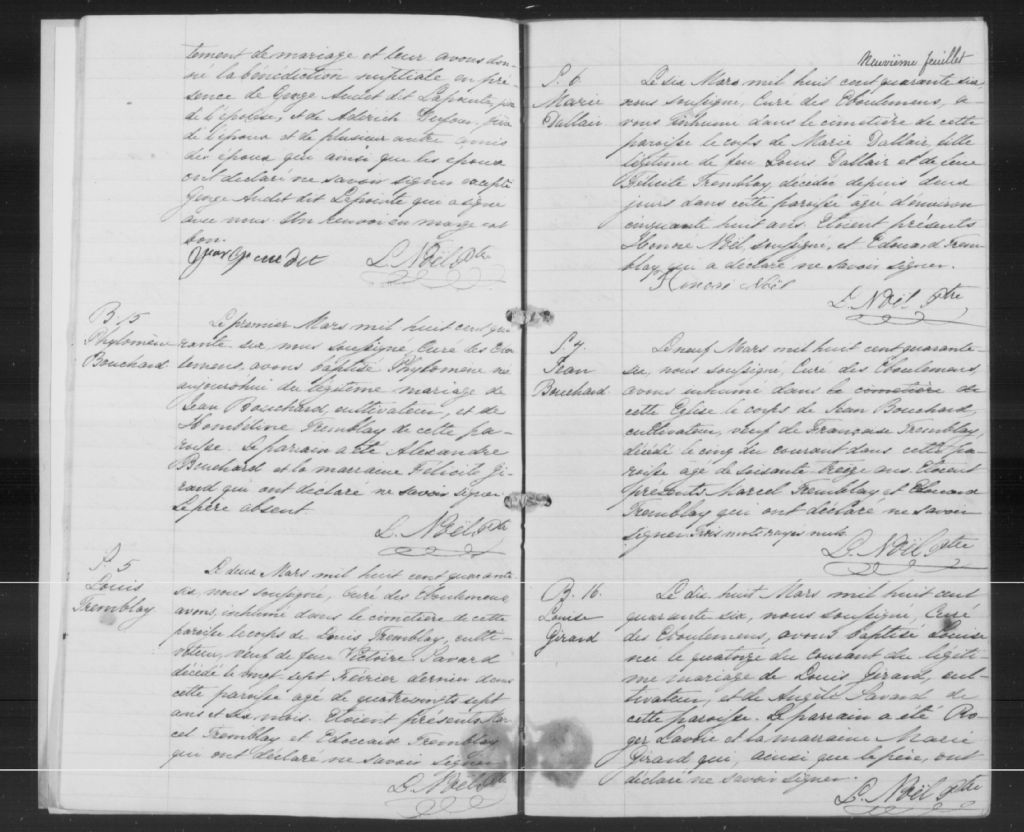 tement de mariage et leur avons don-
né la bénédiction nuptiale en pré-
sence de George Audet dit Lapointe, père
de l'épouse, et de
de l'époux et de plusieur autre amis
des époux qui ainsi que les époux
ont déclaré ne savoir signer excepté
George Audet dit Lapointe qui a signé
avec nous. Un renvoi en marge est
bon.
L. Noël Ptre
B. 15
Phylomène
Bouchard
Le premier Mars mil huit cent qua-
rante six nous soussigné, Curé des Ebou-
lemens, avons baptisé Phylomène née
aujourd'hui du légitime mariage de
Jean Bouchard, cultivateur, et de
Tremblay de cette pa-
roisse. Le parrain a été Alexandre
Bouchard et la marraine Félicité Gi-
rard qui ont déclaré ne savoir signer
Le père absent.
L. Noël Ptre
S. 5
Louis
Tremblay
Le deux Mars mil huit cent quarante
six, nous soussigné, Curé des Eboulemens
avons inhumé dans le cimetière de cette
paroisse le corps de Louis Tremblay, culti-
vateur, veuf de feue Victoire Savard
décédé le vingt sept Février dernier dans
cette paroisse agé de quatrevingts sept
ans et six mois. Etoient présents Mar-
cel Tremblay et Edouard Tremblay
qui ont déclaré ne savoir signer
L. Noël Ptre
Neuvième feuillet
S. 6
Marie
Dallair
Le six Mars mil huit cent quarante six,
nous soussigné, Curé des Eboulemens, a-
vons inhumé dans le cimetière de cette
paroisse le corps de Marie Dallair, fille
légitime de feu Louis Dallair et de feue
Félicité Tremblay, décédée depuis deux
jours dans cette paroisse agée d'environ
cinquante huit ans. Etoient présents
Honoré Noël, soussigné, et Edouard Trem-
blay qui a déclaré ne savoir signer.
Honoré Noël
L. Noël Ptre
S. 7
Jean
Bouchard
Le neuf Mars mil huit cent quarante-
six, nous soussigné, Curé des Eboulemens,
avons inhumé dans le cimetière de
cette Eglise le corps de Jean Bouchard,
cultivateur, veuf de Françoise Tremblay,
décédé le cinq du courant dans cette pa-
roisse agé de soixante treize ans. Etoient
présents Marcel Tremblay et Edouard
Tremblay qui ont déclaré ne savoir
signer. Trois mots rayés nuls
L. Noël Ptre
B. 16.
Louise
Girard
Le dix huit Mars mil huit cent
quarante six, nous soussigné, Curé
des Eboulemens, avons baptisé Louise
née le quatorze du courant du légiti-
me mariage de Louis Girard, cul-
tivateur, et de Angèle Savard de
cette paroisse. Le parrain a été Ro-
ger Lavoie et la marraine Marie
Girard qui, ainsi que le père, ont
déclaré ne savoir signer.
L. Noël Ptre